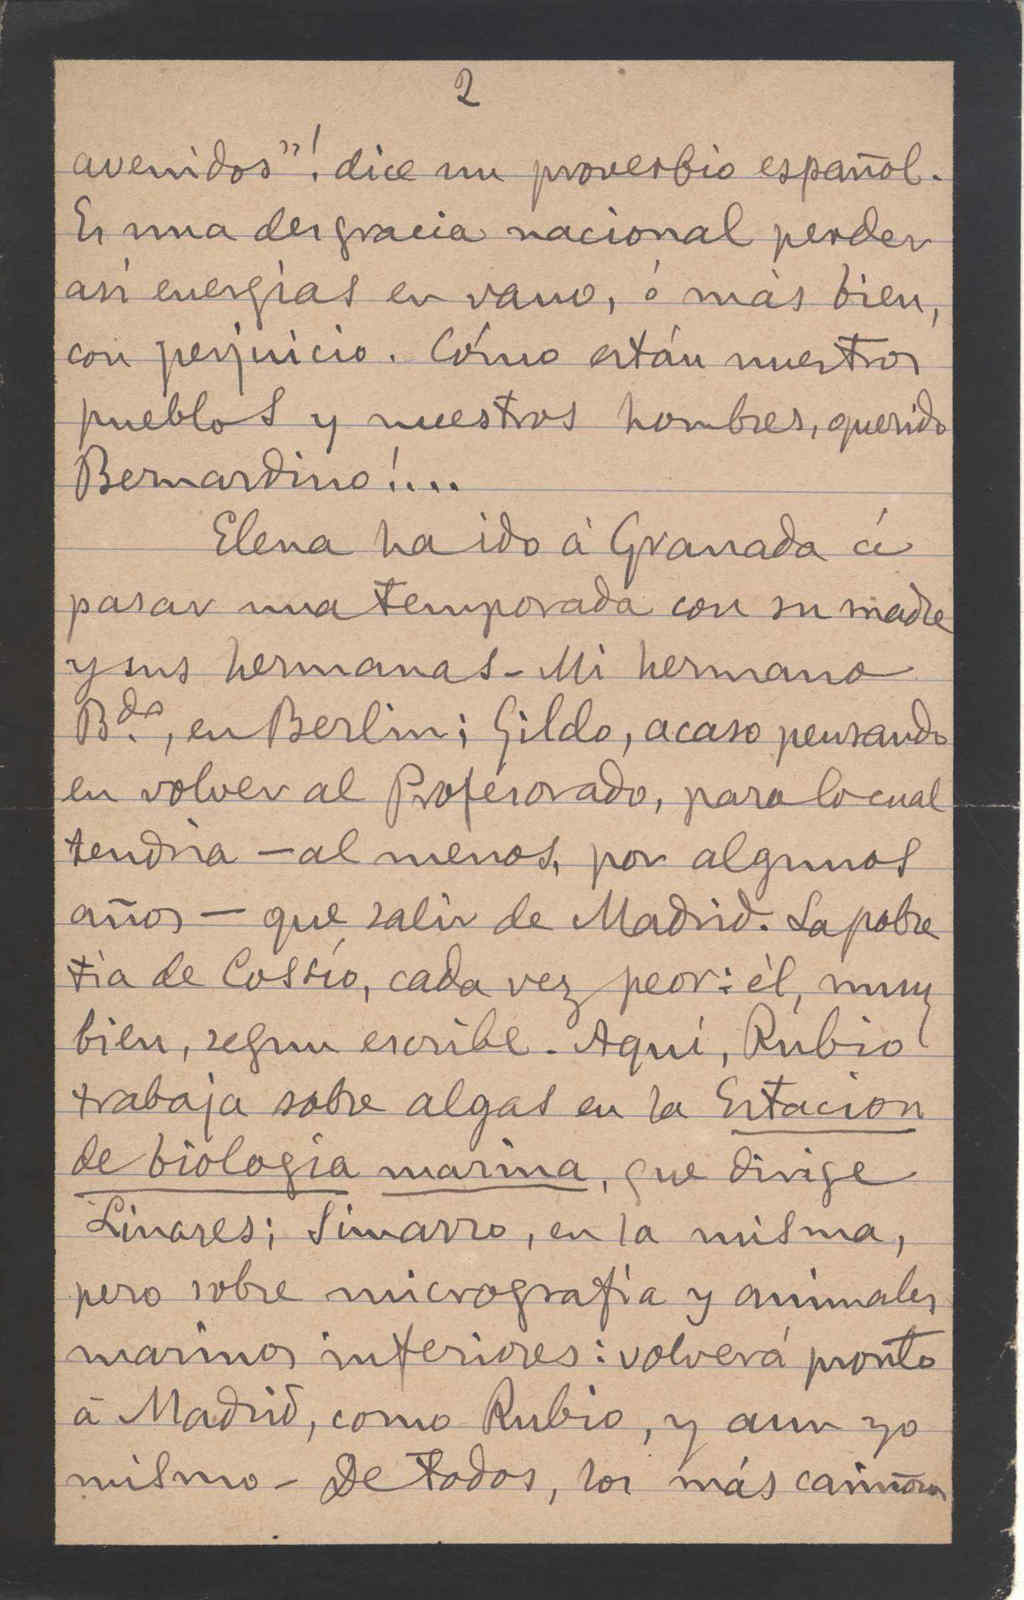 2
avenidos"! dice un proverbio español.
Es una desgracia nacional perder
así energías en vano, ó más bien,
con perjuicio. Cómo están nuestros
pueblos y nuestros hombres, querido
Bernardino!....
Elena ha ido á Granada á
pasar una temporada con su madre
y sus hermanas - Mi hermano
B.do, en Berlin; Gildo, acaso pensando
en volver al Profesorado, para lo cual
tendria — al menos, por algunos
años — que salir de Madrid. La pobre
tia de Cossío, cada vez peor: él, muy
bien, segun escribe. Aquí, Rubio
trabaja sobre algas en la Estacion
de biologia marina, que dirige
Linares; Simarro, en la misma,
pero sobre micrografia y animales
marinos inferiores: volverá pronto
á Madrid, como Rubio, y aun yo
mismo - De todos, los más cariñosos